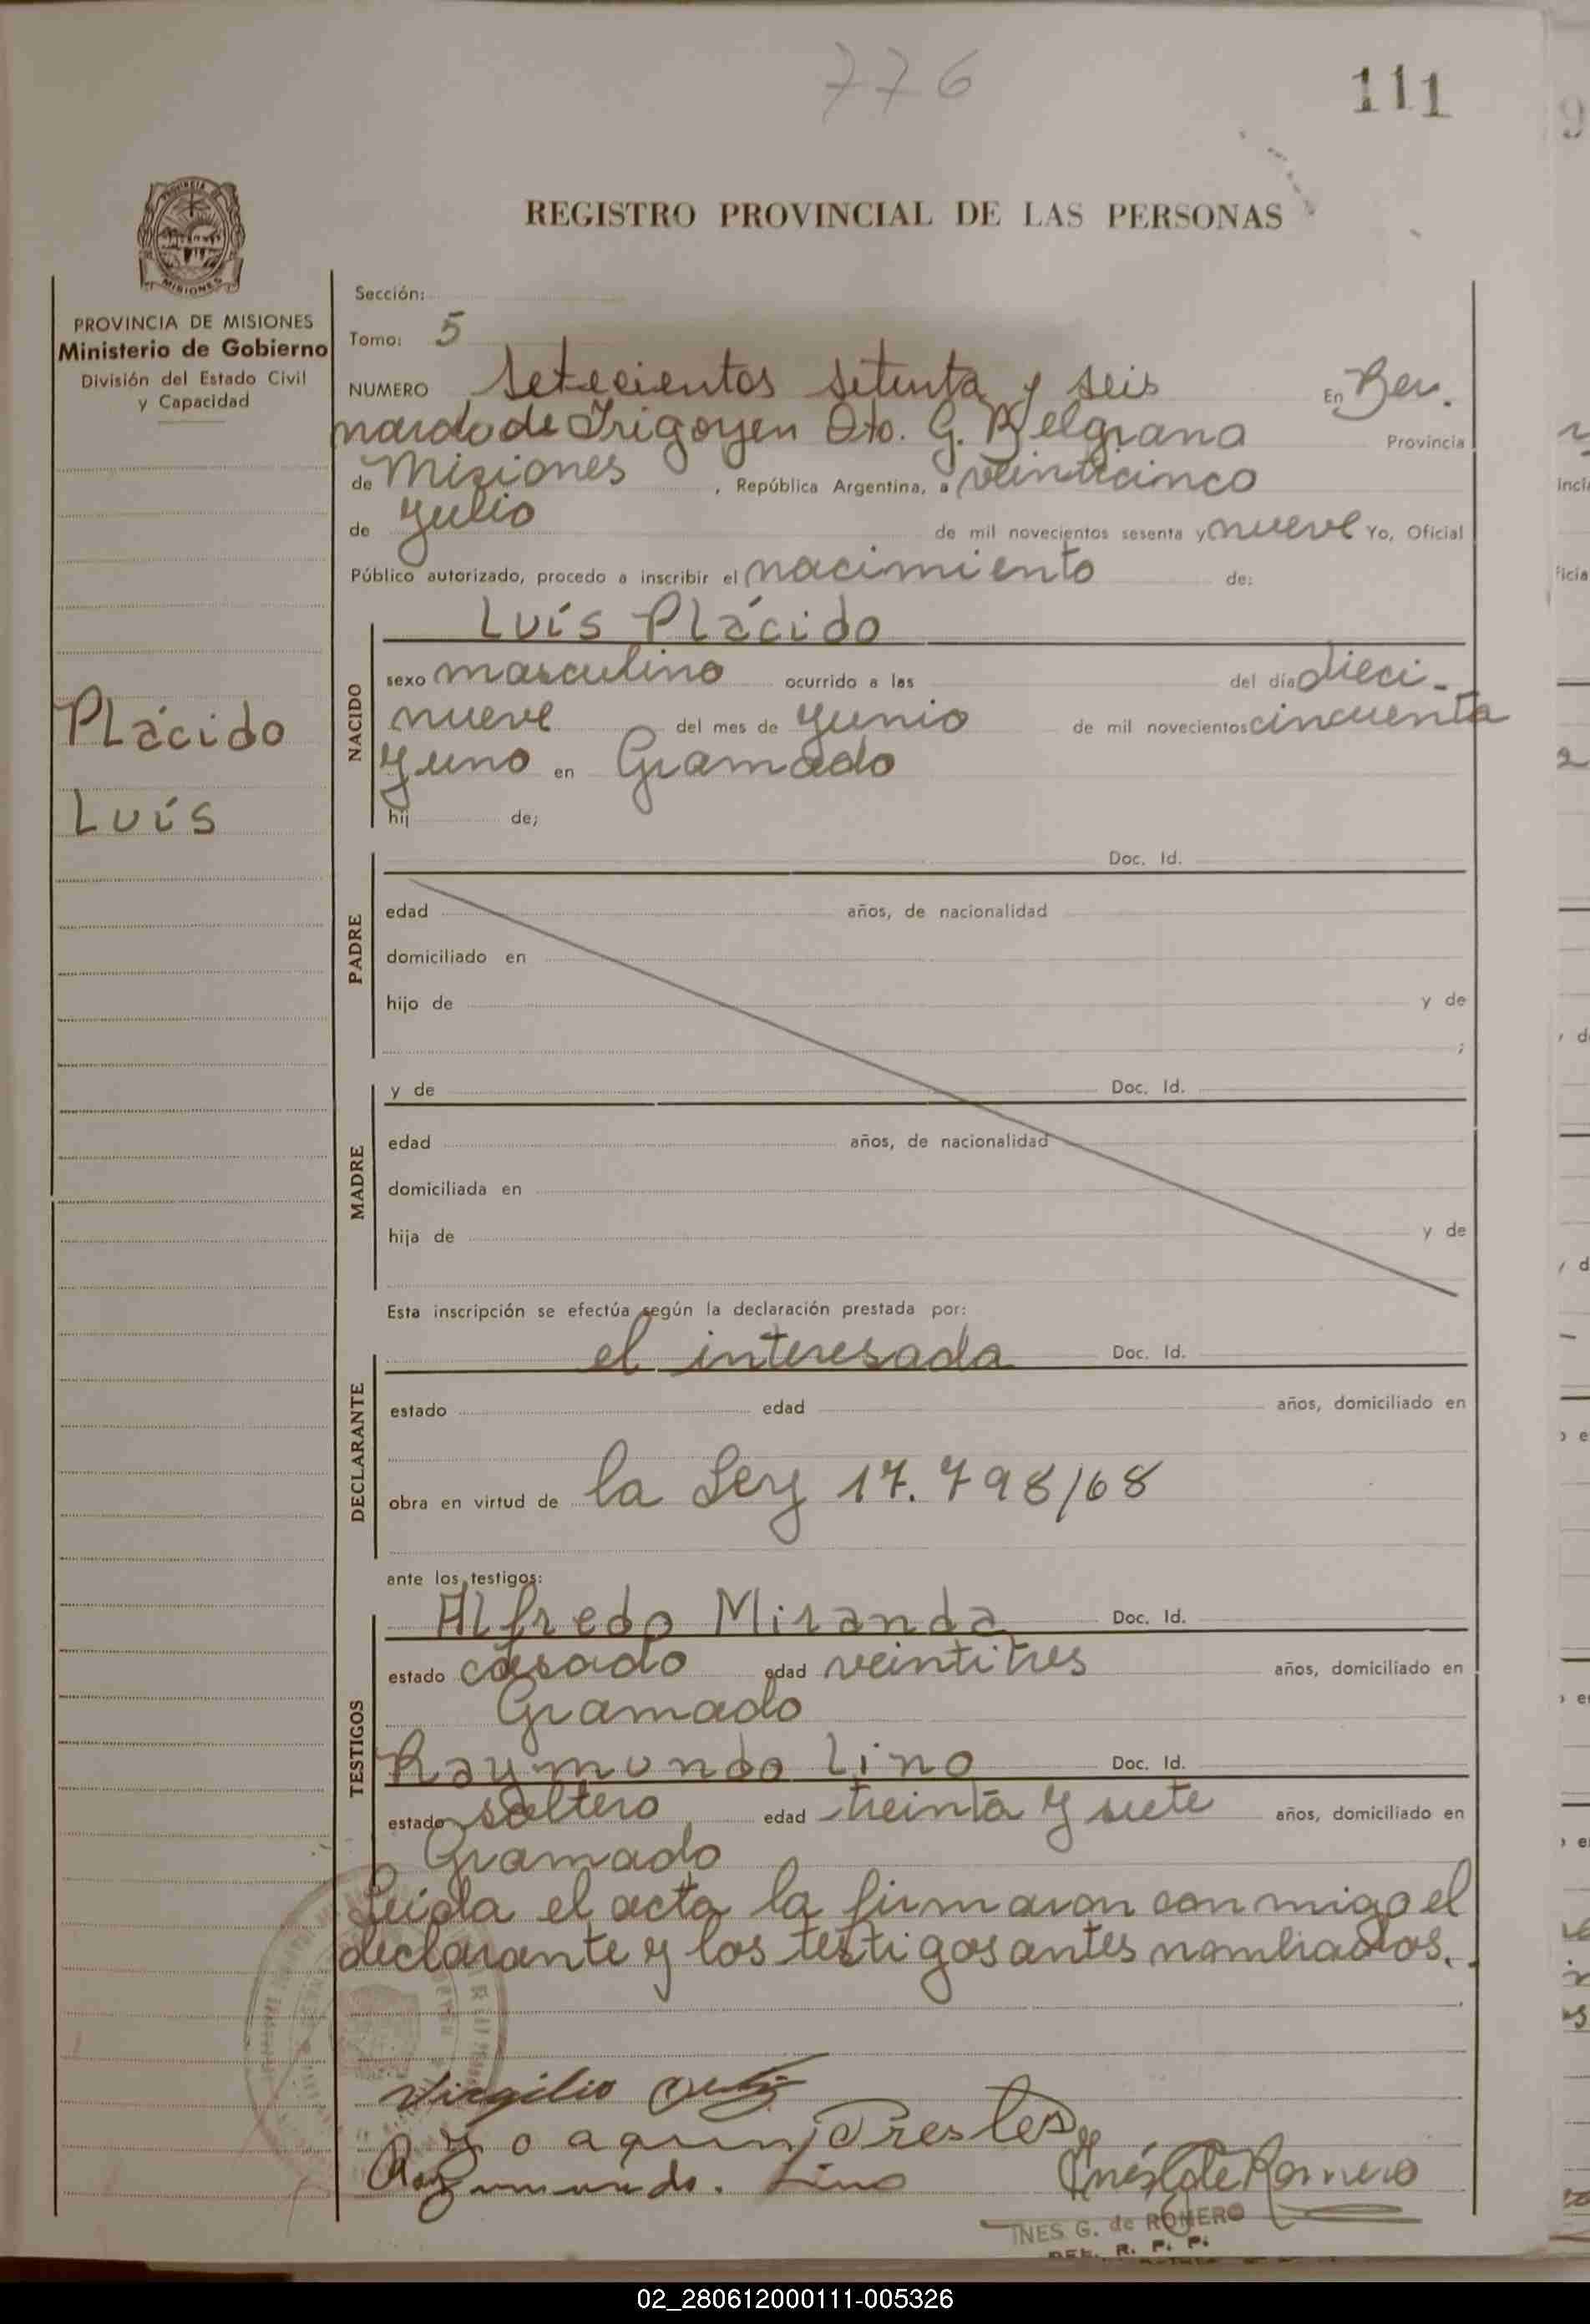 776
111
REGISTRO PROVINCIAL DE LAS PERSONAS
MISIONES
PROVINCIA DE MISIONES
Ministerio de Gobierno
División del Estado Civil
y Capacidad
Sección:
Tomo: 5
NUMERO Setecientos setenta y seis En Ber.
nardo de Irigoyen Dto. G. Belgrano Provincia
de Misiones , República Argentina, a veinticinco
de Julio de mil novecientos sesenta y nueve Yo, Oficial
Público autorizado, procedo a inscribir el nacimiento de:
Luís Plácido
NACIDO
sexo masculino ocurrido a las del día dieci-
nueve del mes de Yunio de mil novecientos cincuenta
y uno en Gramado
hij de;
Plácido
Luís
PADRE
Doc. Id.
edad años, de nacionalidad
domiciliado en
hijo de y de
;
MADRE
y de Doc. Id.
edad años, de nacionalidad
domiciliada en
hija de y de
Esta inscripción se efectúa según la declaración prestada por:
DECLARANTE
el interesada Doc. Id.
estado edad años, domiciliado en
obra en virtud de la Ley 17.798/68
ante los testigos:
TESTIGOS
Alfredo Miranda Doc. Id.
estado casado edad veintitres años, domiciliado en
Gramado
Raymundo Lino Doc. Id.
estado soltero edad treinta y siete años, domiciliado en
Gramado
Leída el acta la firmaron conmigo el
declarante y los testigos antes nombrados.
Virgilio
Yoaquin Prestes
Raymundo. Lino
Inés G de Romero
INES G. de ROMERO
R. P. P.
02_280612000111-005326